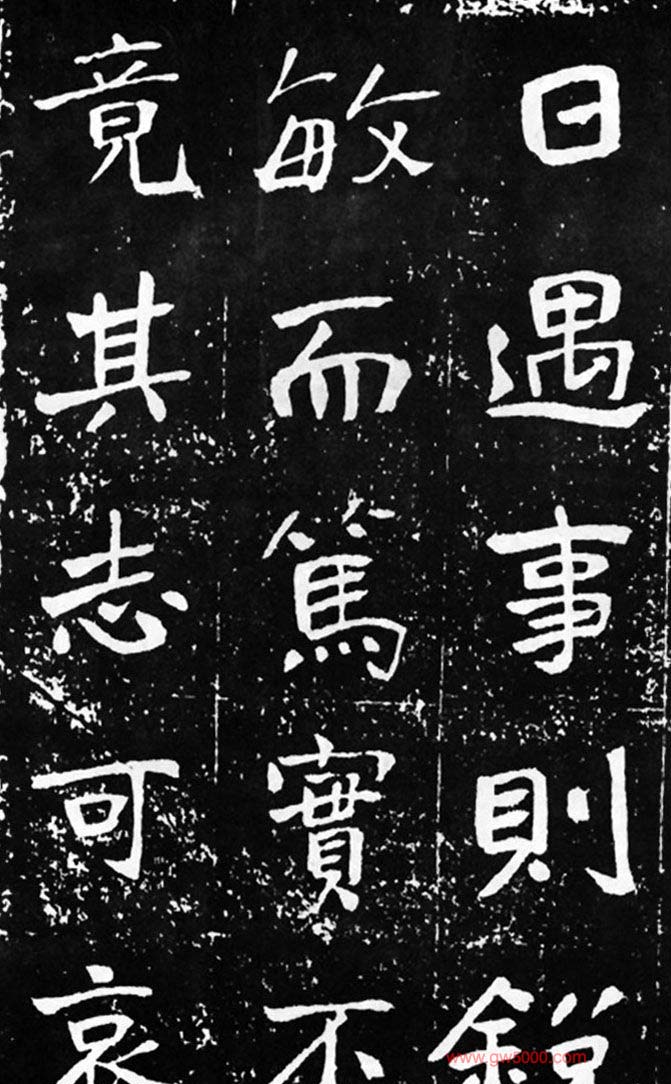 日遇事則鋭
敏而篤實不
竟其志可哀
www.gw5000.com